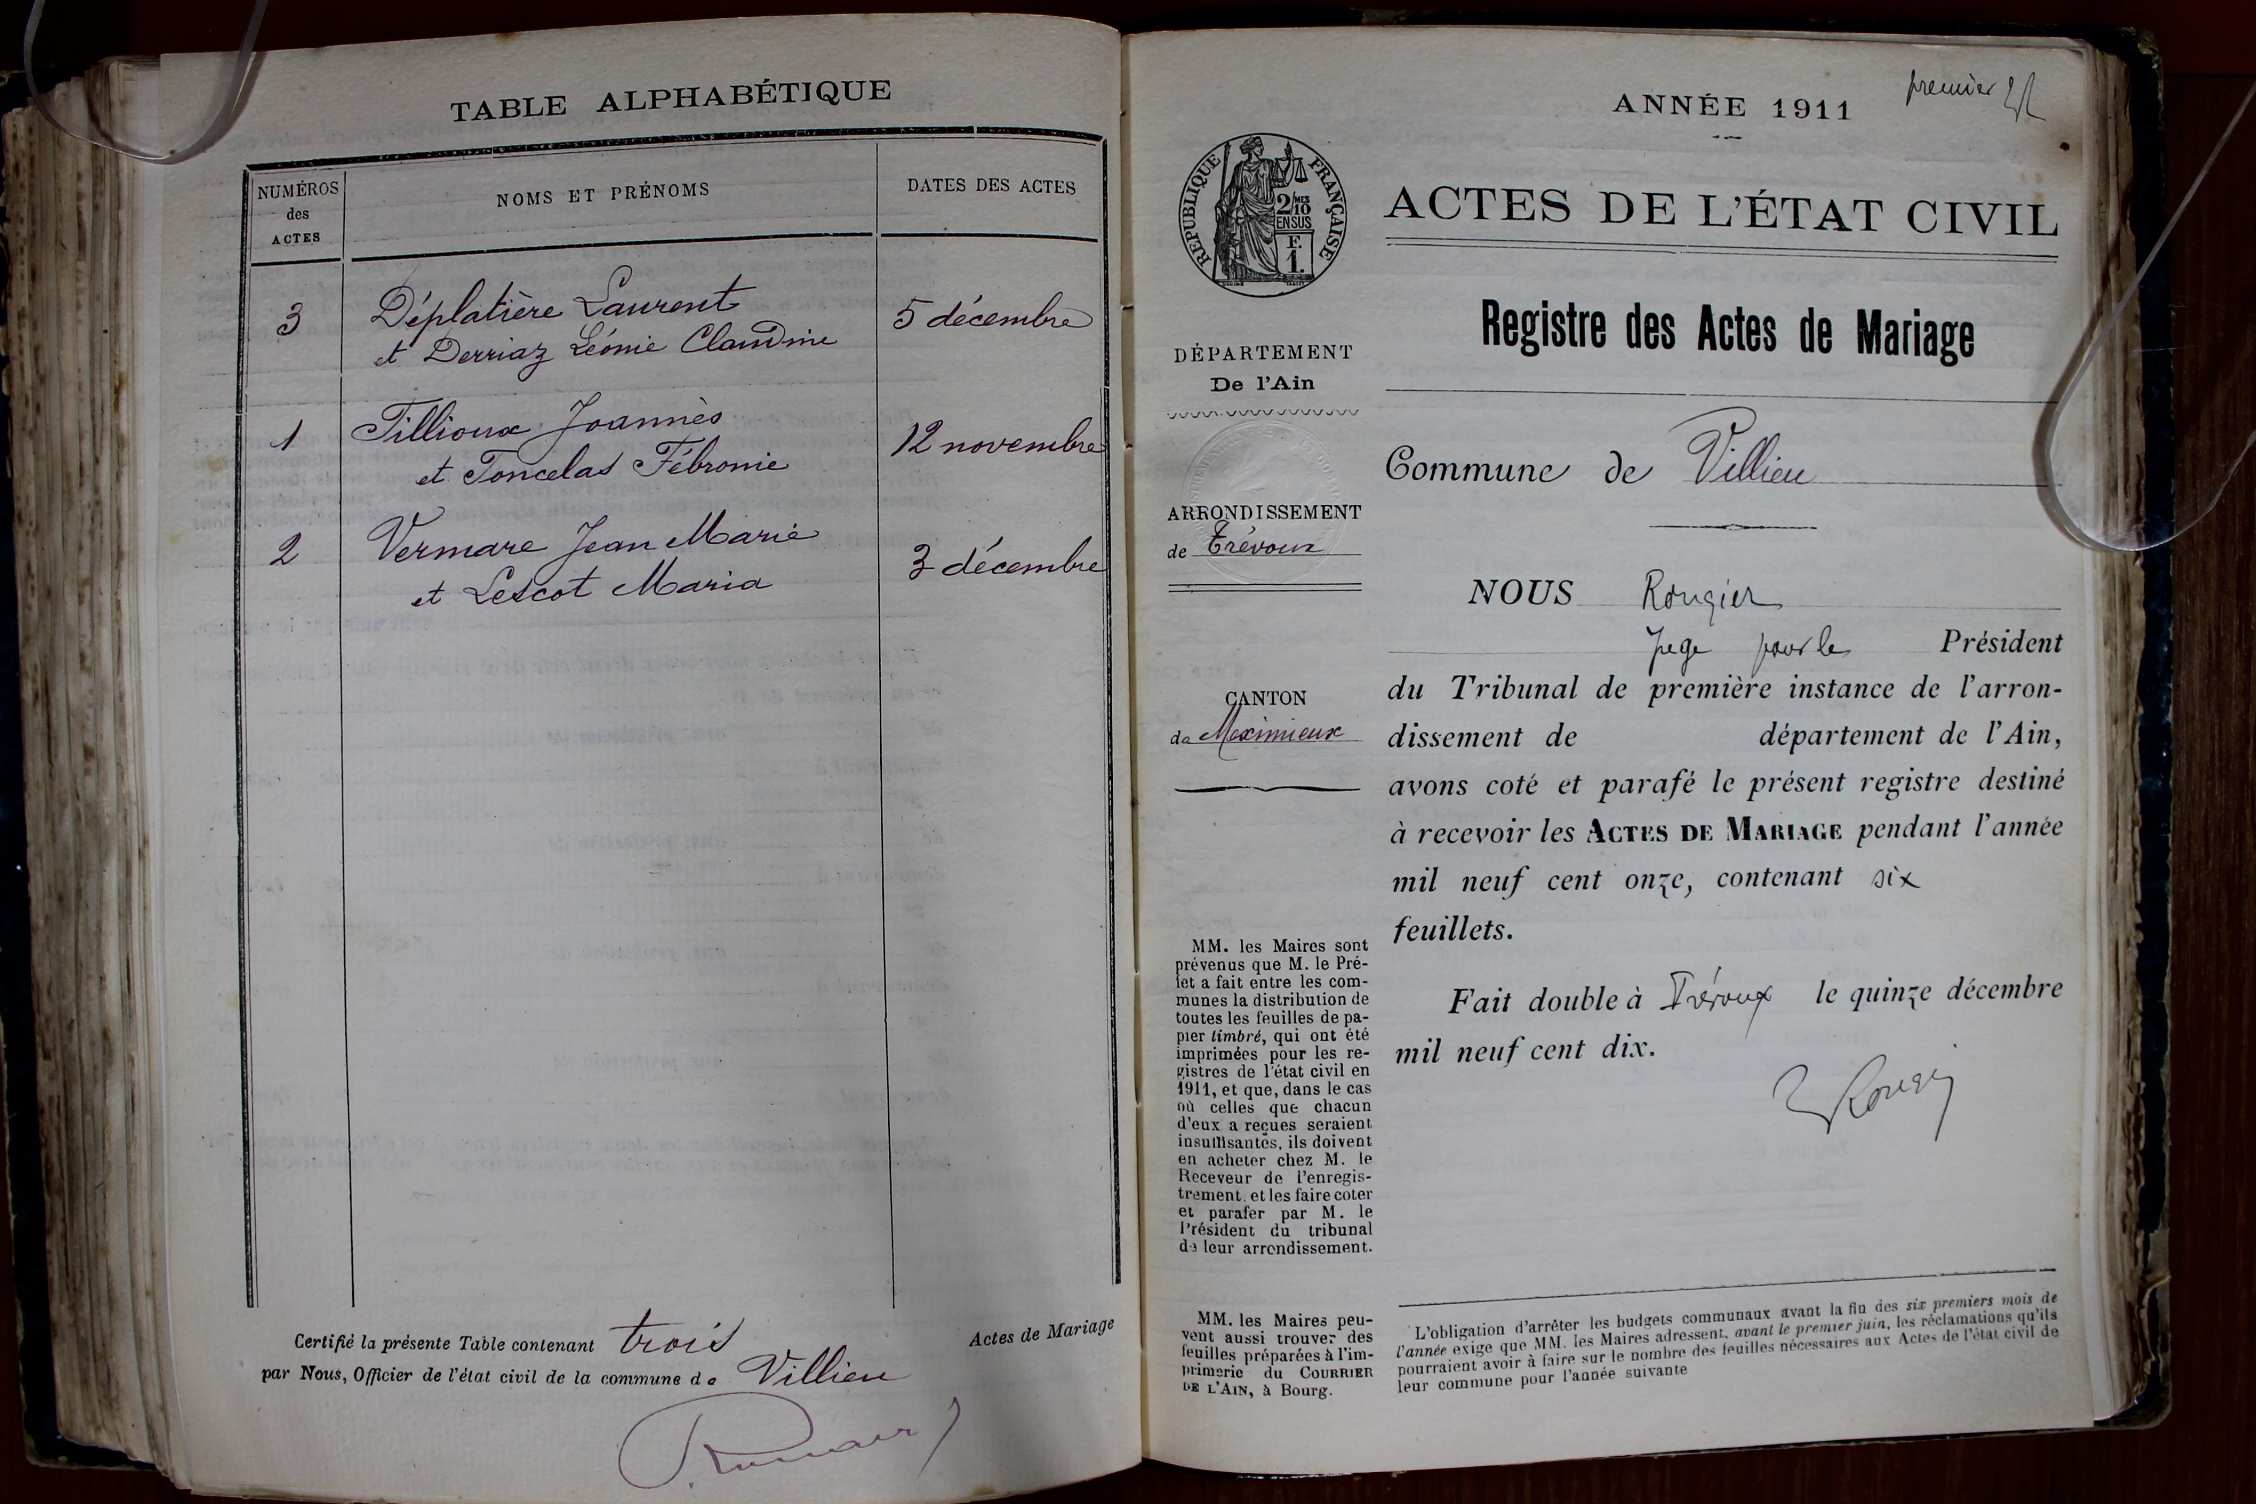 TABLE ALPHABÉTIQUE
NUMÉROS
des
ACTES
NOMS ET PRÉNOMS
DATES DES ACTES
3
Déplatière Laurent
et Derriaz Léonie Claudine
5 décembre
1
Tillioux Joannès
et Toncelas Fébronie
12 novembre
2
Vermare Jean Marie
et Lescot Maria
3 décembre
Certifié la présente Table contenant trois Actes de Mariage
par Nous, Officier de l'état civil de la commune de Villieu
premier
ANNÉE 1911
RÉPUBLIQUE FRANÇAISE
2/10 MES
EN SUS
F.
1.
ACTES DE L'ÉTAT CIVIL
Registre des Actes de Mariage
DÉPARTEMENT
De l'Ain
Commune de Villieu
ARRONDISSEMENT
de Trévoux
CANTON
de Meximieux
NOUS Rougier
Juge pour le Président
du Tribunal de première instance de l'arron-
dissement de département de l'Ain,
avons coté et parafé le présent registre destiné
à recevoir les ACTES DE MARIAGE pendant l'année
mil neuf cent onze, contenant six
feuillets.
Fait double à Trévoux le quinze décembre
mil neuf cent dix.
Rougier
MM. les Maires sont
prévenus que M. le Pré-
fet a fait entre les com-
munes la distribution de
toutes les feuilles de pa-
pier timbré, qui ont été
imprimées pour les re-
gistres de l'état civil en
1911, et que, dans le cas
où celles que chacun
d'eux a reçues seraient
insuffisantes, ils doivent
en acheter chez M. le
Receveur de l'enregis-
trement, et les faire coter
et parafer par M. le
Président du tribunal
de leur arrondissement.
MM. les Maires peu-
vent aussi trouver des
feuilles préparées à l'im-
primerie du COURRIER
DE L'AIN, à Bourg.
L'obligation d'arrêter les budgets communaux avant la fin des six premiers mois de
l'année exige que MM. les Maires adressent, avant le premier juin, les réclamations qu'ils
pourraient avoir à faire sur le nombre des feuilles nécessaires aux Actes de l'état civil de
leur commune pour l'année suivante